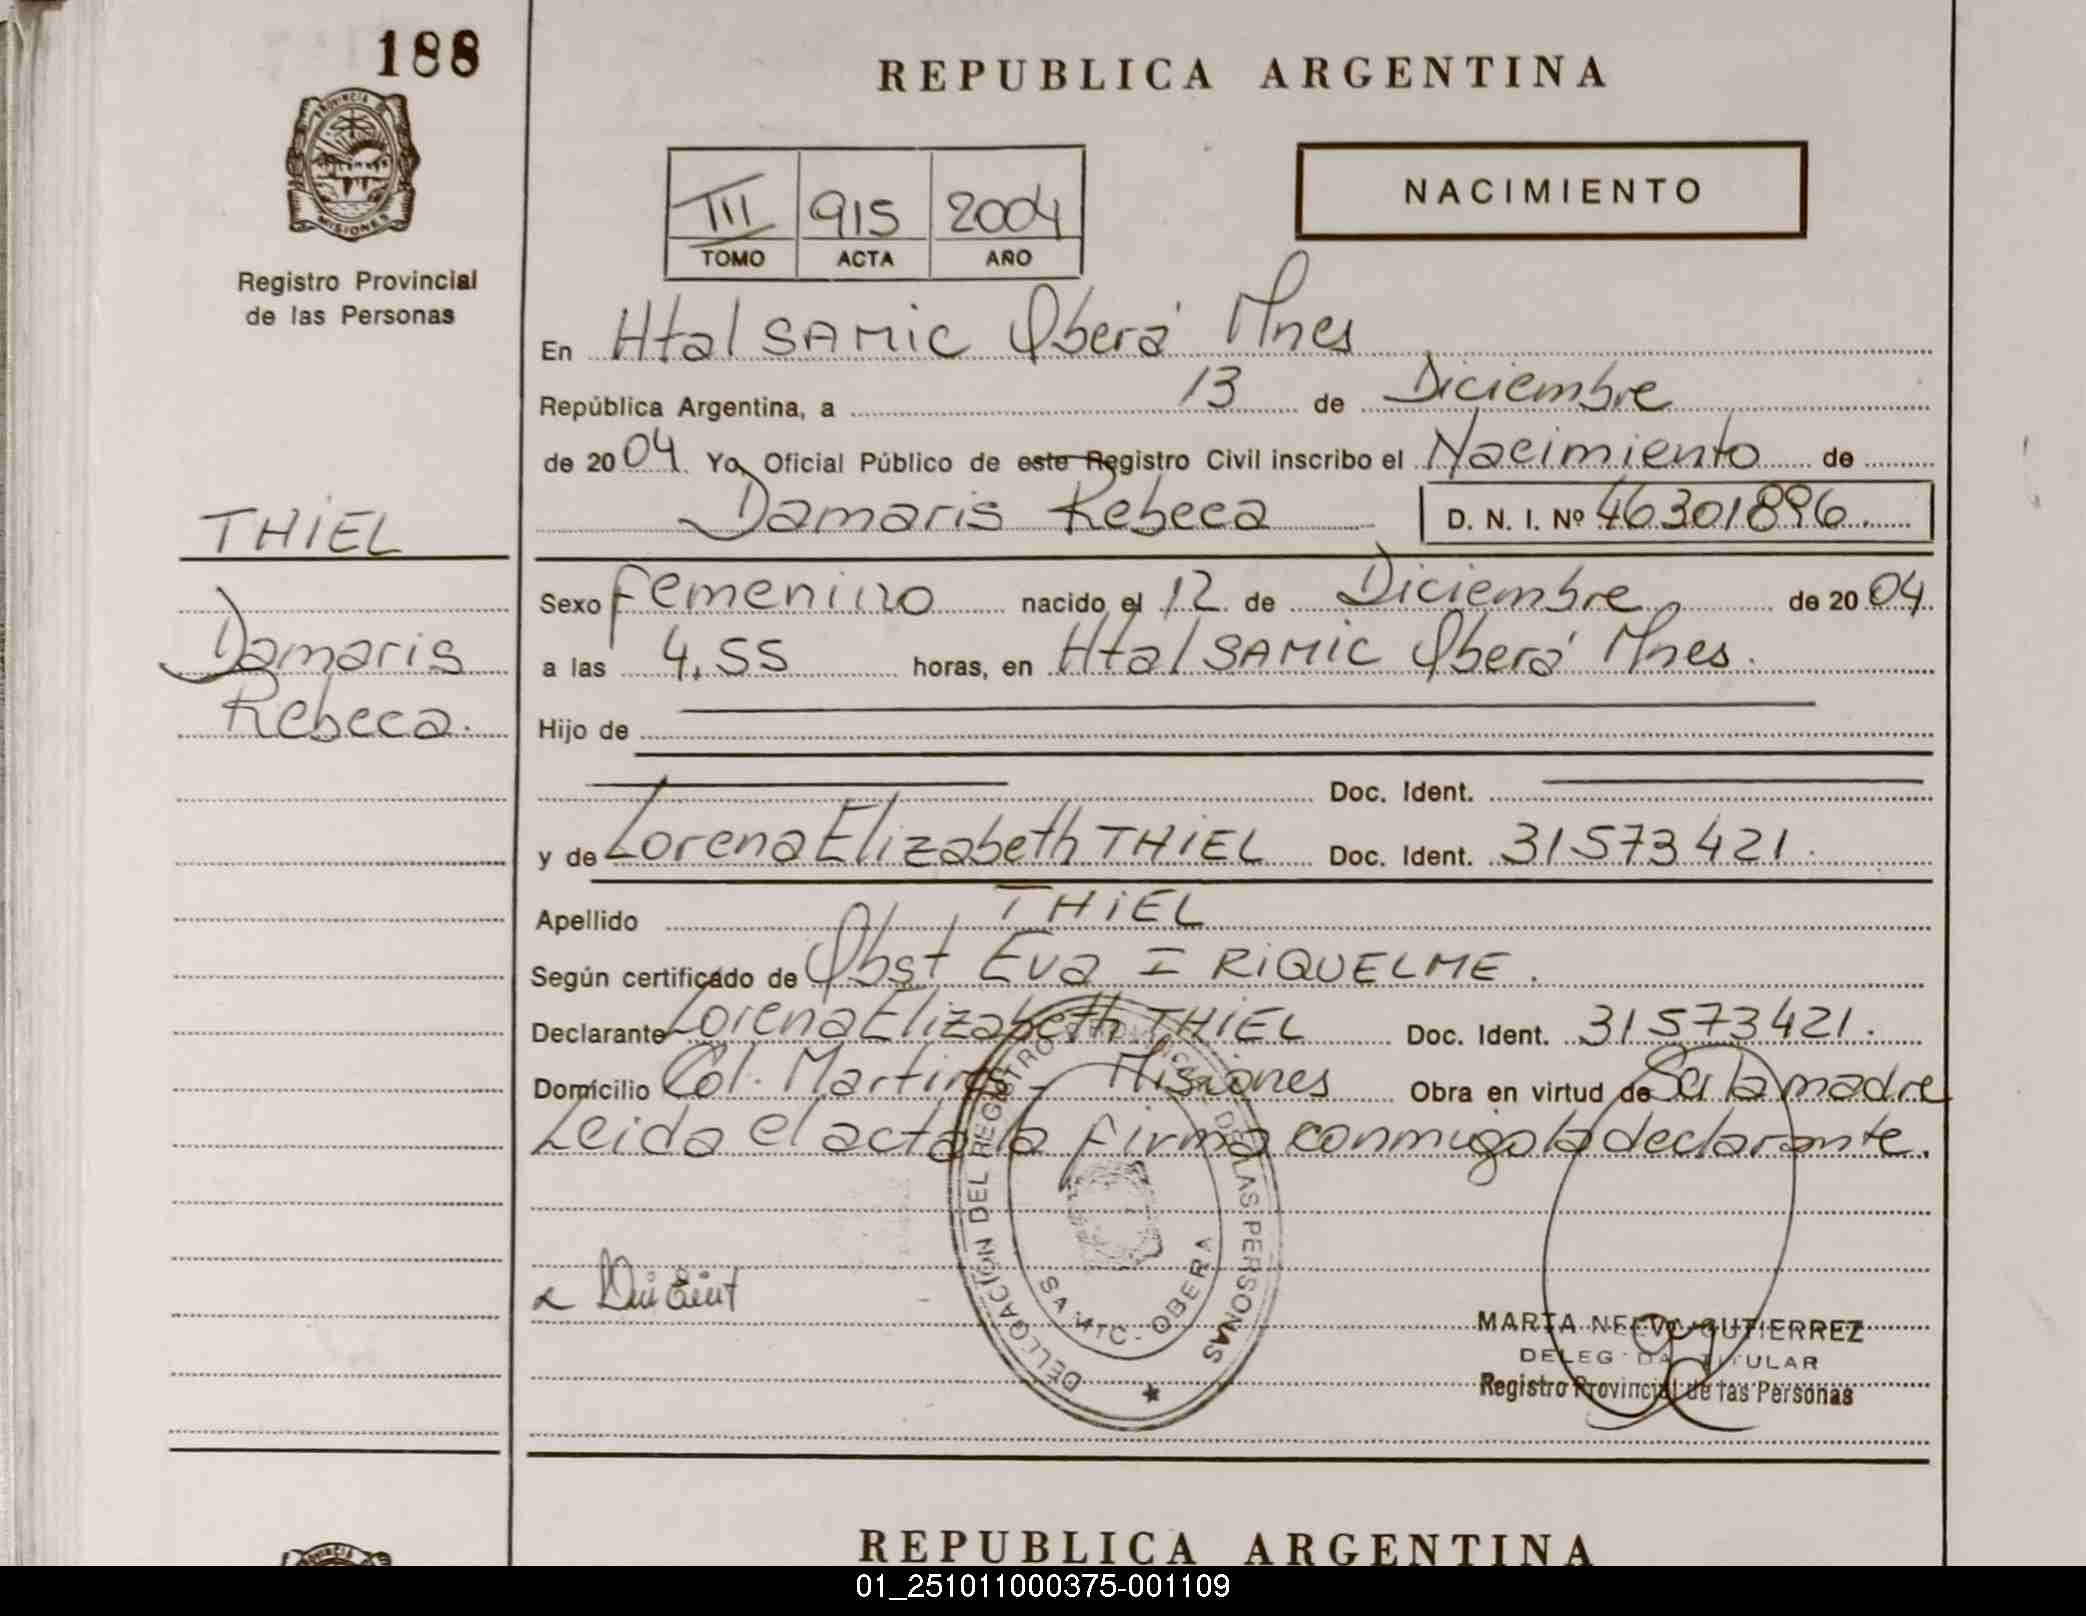 188
REPUBLICA ARGENTINA
PROVINCIA DE
MISIONES
Registro Provincial
de las Personas
III 915 2004
TOMO ACTA AÑO
NACIMIENTO
En Htal SAMIC Oberá Mnes
República Argentina, a 13 de Diciembre
de 2004. Yo, Oficial Público de este Registro Civil inscribo el Nacimiento de
Damaris Rebeca D. N. I. Nº 46301896
THIEL
Damaris
Rebeca.
Sexo Femenino nacido el 12 de Diciembre de 2004.
a las 4,55 horas, en Htal SAMIC Oberá Mnes.
Hijo de
Doc. Ident.
y de Lorena Elizabeth THIEL Doc. Ident. 31573421.
Apellido THIEL
Según certificado de Obst Eva I RIQUELME.
Declarante Lorena Elizabeth THIEL Doc. Ident. 31573421.
Domicilio Col. Martires - Misiones Obra en virtud de Ser la madre
Leida el acta la firma conmigo la declarante.
DELEGACION DEL REGISTRO PROVINCIAL DE LAS PERSONAS
SAMIC - OBERA
MARTA NEEVA GUTIERREZ
DELEGADA TITULAR
Registro Provincial de las Personas
REPUBLICA ARGENTINA
PROVINCIA
01_251011000375-001109